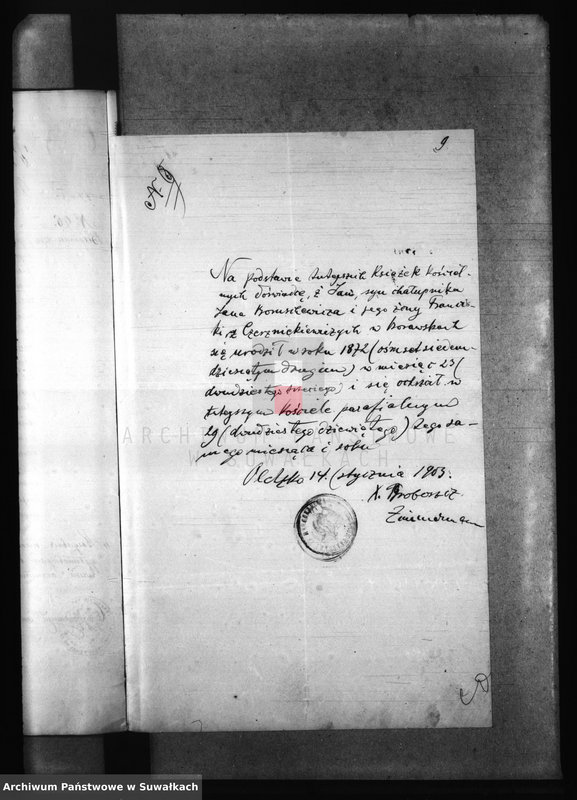 9
Na podstawie tutejszych Książek kościel-
nych dowiadcę, ż Jan, syn chałupnika
Jana Borusiewicza i jego żony Francisz-
ki z w
się urodził w roku 1872 (ośmset siedem-
dziesiątym drugim) w miesiąc 23
(dwudziestego trzeciego) i się ochrzał w
tutejszym kościele parafjalnym
29 (dwudziestego dziewiątego) tego sa-
mego miesiąca i roku
14. stycznia 1903.
X. Proboszcz
ARCHIWUM PAŃSTWOWE
W SUWAŁKACH
Archiwum Państwowe w Suwałkach